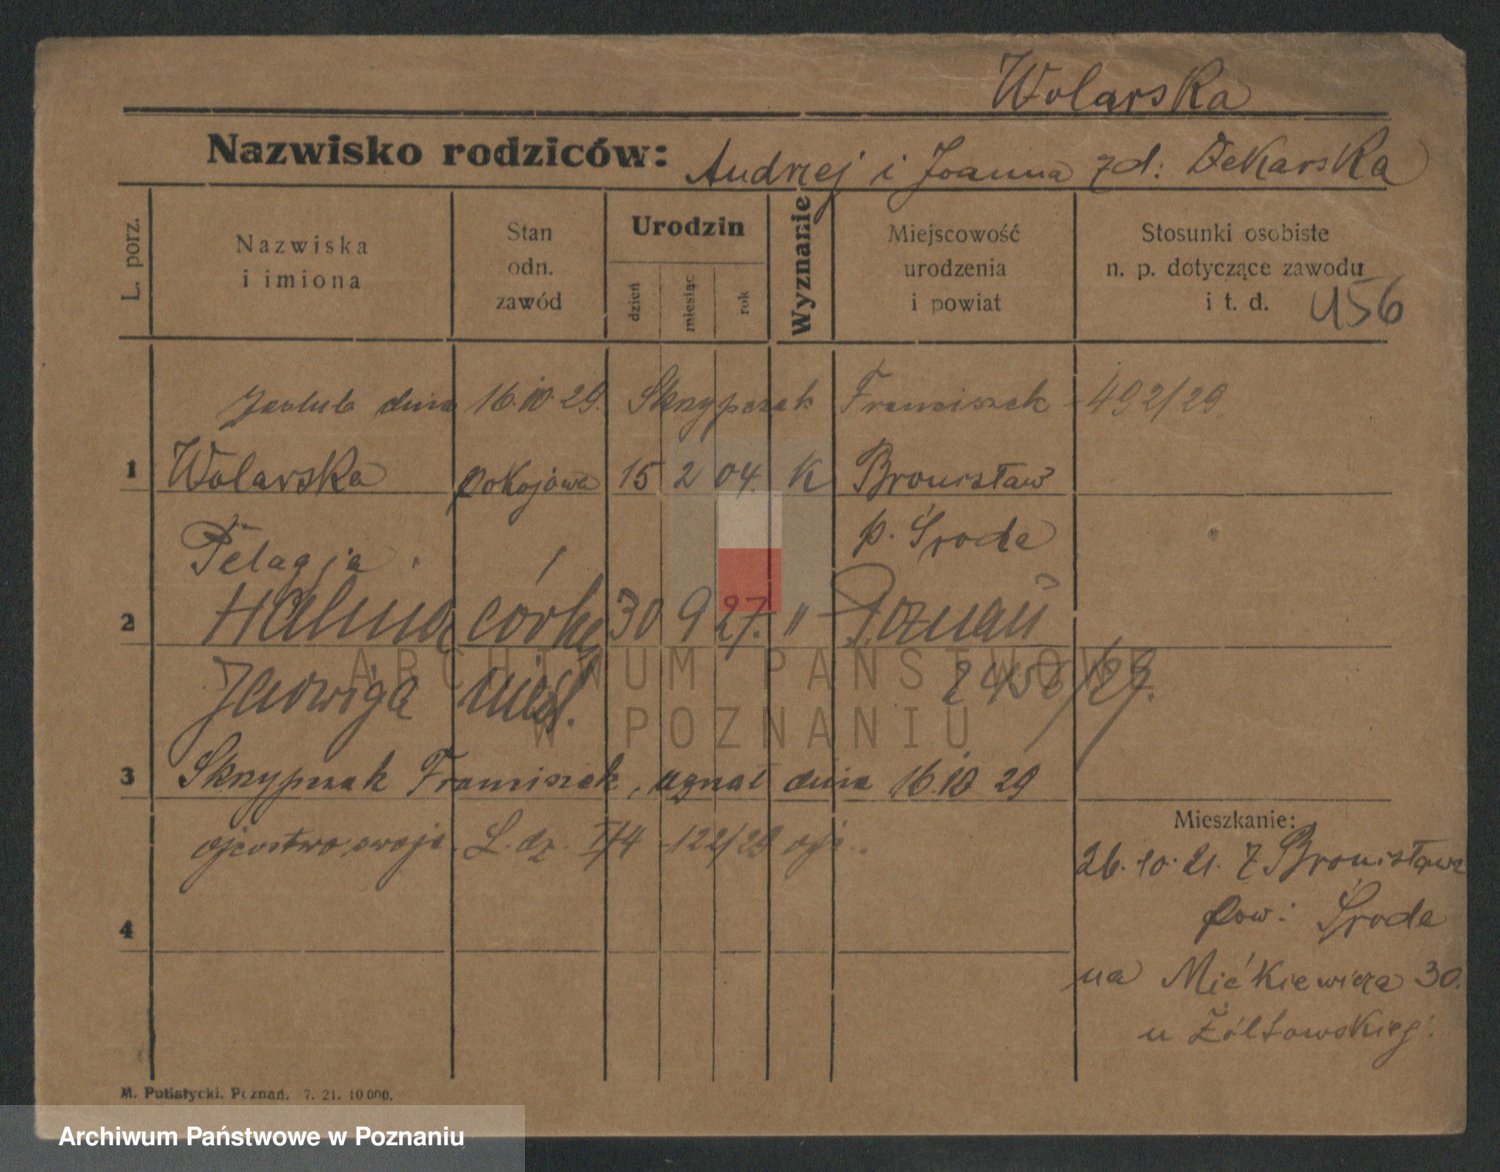 Wolarska
Nazwisko rodziców: Andrzej i Joanna zd: Dekarska
L. porz.
Nazwiska i imiona
Stan odn. zawód
Urodzin
dzień
miesiąc
rok
Wyznanie
Miejscowość urodzenia i powiat
Stosunki osobiste n. p. dotyczące zawodu i t. d.
456
dnia 16.10.29. Skrzypczak Franciszek - 492/29
1 Wolarska pokojowa 15 2 04. K Bronisław
Pelagja p. Środa
2 Halina córka 30 9 27. " Poznań
Jadwiga nieśl. 2458/29.
ARCHIWUM PAŃSTWOWE
W POZNANIU
3 Skrzypczak Franciszek, uznał dnia 16.10 29
ojcostwo swoje. L. dz. 122/29
Mieszkanie:
26.10.21. z Bronisława
pow: Środa
4
na Mickiewicza 30.
u Żółtowskiej.
M. Putiatycki. Poznań. 7. 21. 10 000.
Archiwum Państwowe w Poznaniu